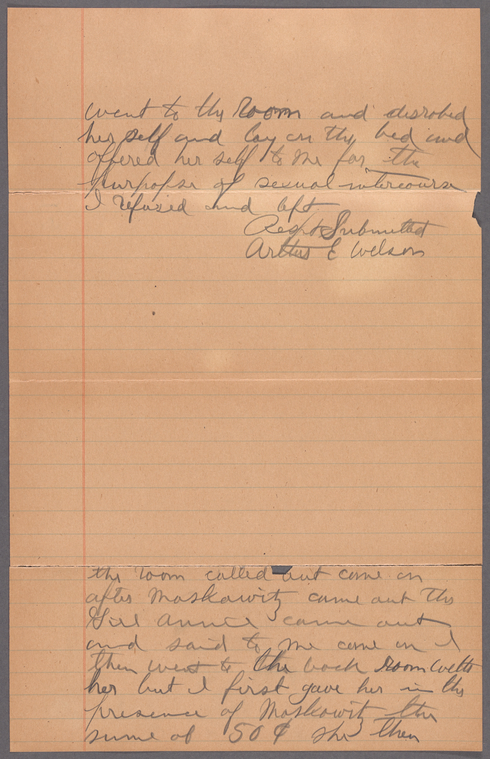 went to the Room and disrobed
her self and lay on the bed and
offered her self to me for the
purpopse of sexual intercourse
I refused and left
Respt Submitted
Arthur E Wilson
the room called out come on
after Moskowitz came out the
Girl Annie came out
and said to me come on I
then went to the back room with
her but I first gave her in the
presence of Moskowitz the
sume of 50¢ she then